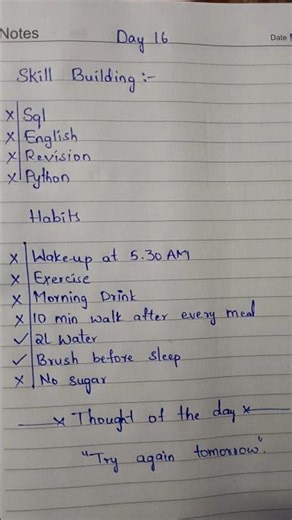 Notes
Day 16
Date
Skill Building :-
× Sql
× English
× Revision
× Python
Habits
× Wake-up at 5.30 AM
× Exercise
× Morning Drink
× 10 min walk after every meal
✓ 2L Water
✓ Brush before sleep
× No sugar
× Thought of the day ×
"Try again tomorrow".